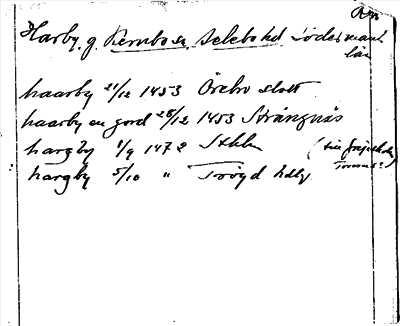 Harby, g. Kernbo sn Selebo hd Söderman
län
haarby 21/12 1453 Örebro slott
haarby en gord 28/12 1453 Strängnäs
hargby 1/9 1472 Sthlm
hargby 5/10 " Tröyd hdg